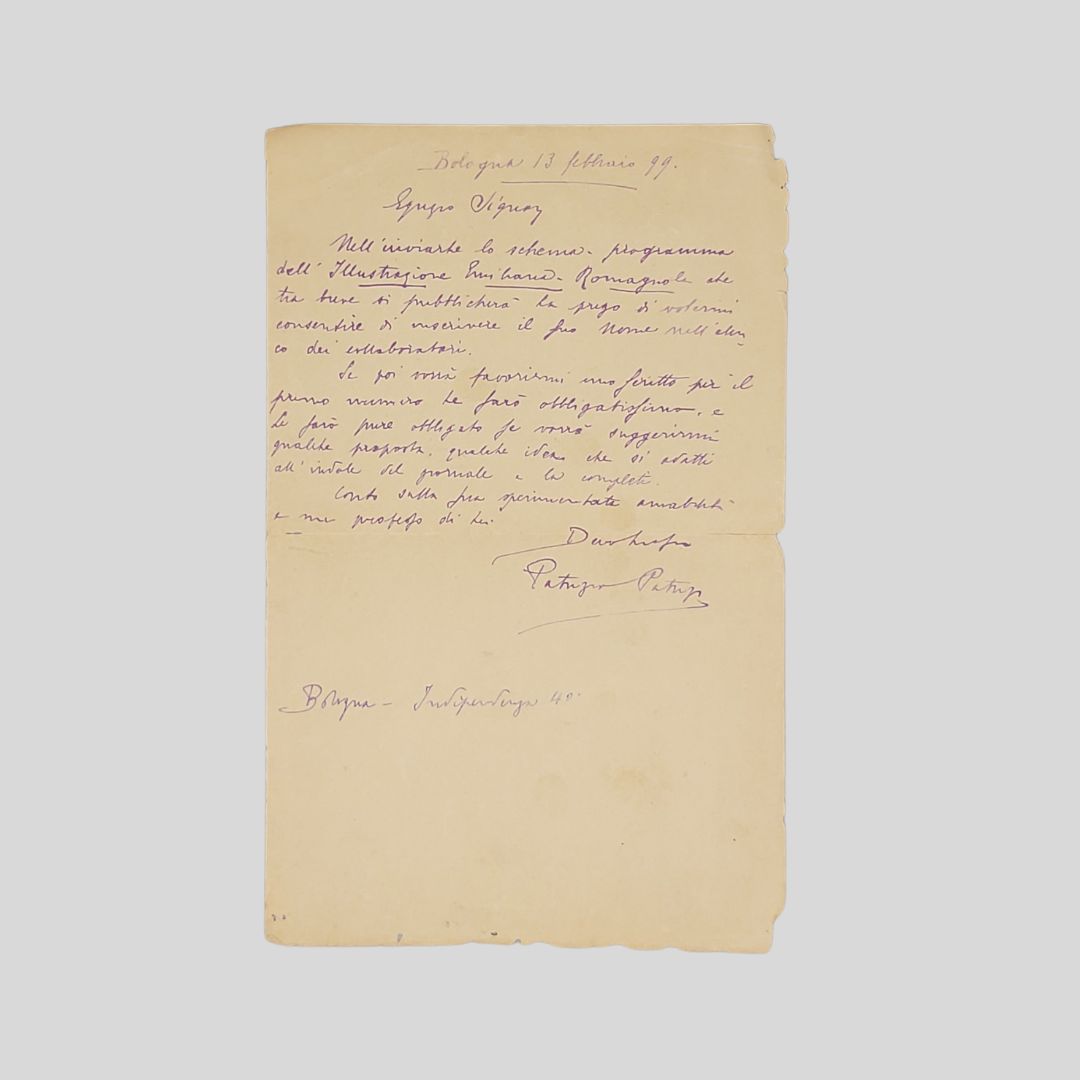 Bologna 13 febbraio 99.
Egregio Signore
Nell'inviarle lo schema-programma
dell'Illustrazione Emiliana-Romagnola che
tra breve si pubblicherà la prego di volermi
consentire di inscrivere il suo nome nell'elen-
co dei collaboratori.
Se poi vorrà favorirmi uno scritto per il
primo numero le sarò obbligatissimo, e
le sarò pure obbligato se vorrà suggerirmi
qualche proposta, qualche idea che si adatti
all'indole del giornale e la completi.
Conto sulla sua sperimentata amabilità
e me professo di Lei
Patrizio Patrizi
Bologna - Indipendenza